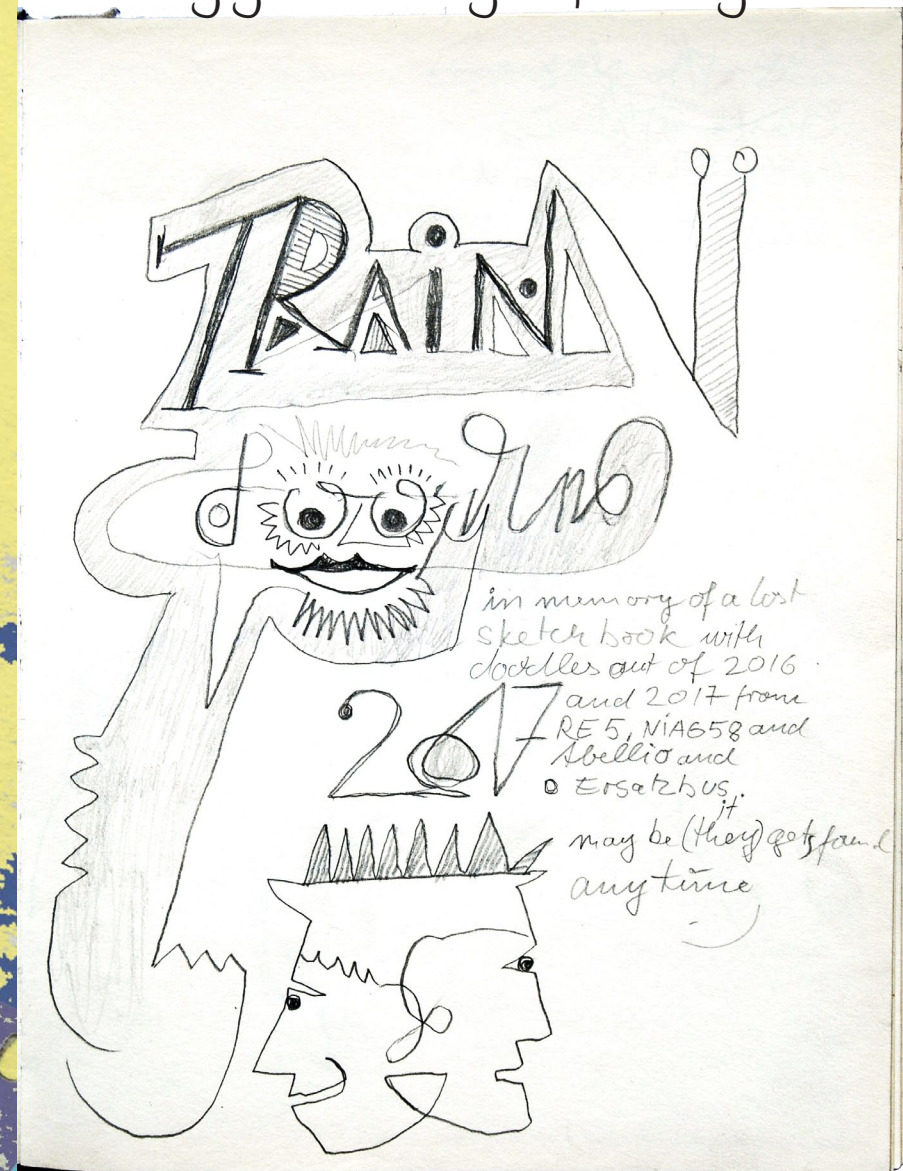 TRAiNN
in memory of a lost
sketchbook with
doodles out of 2016
and 2017 from
RE5, NiAG58 and
Abellio and
Ersatzbus.
it
may be (they) gets found
anytime
2017